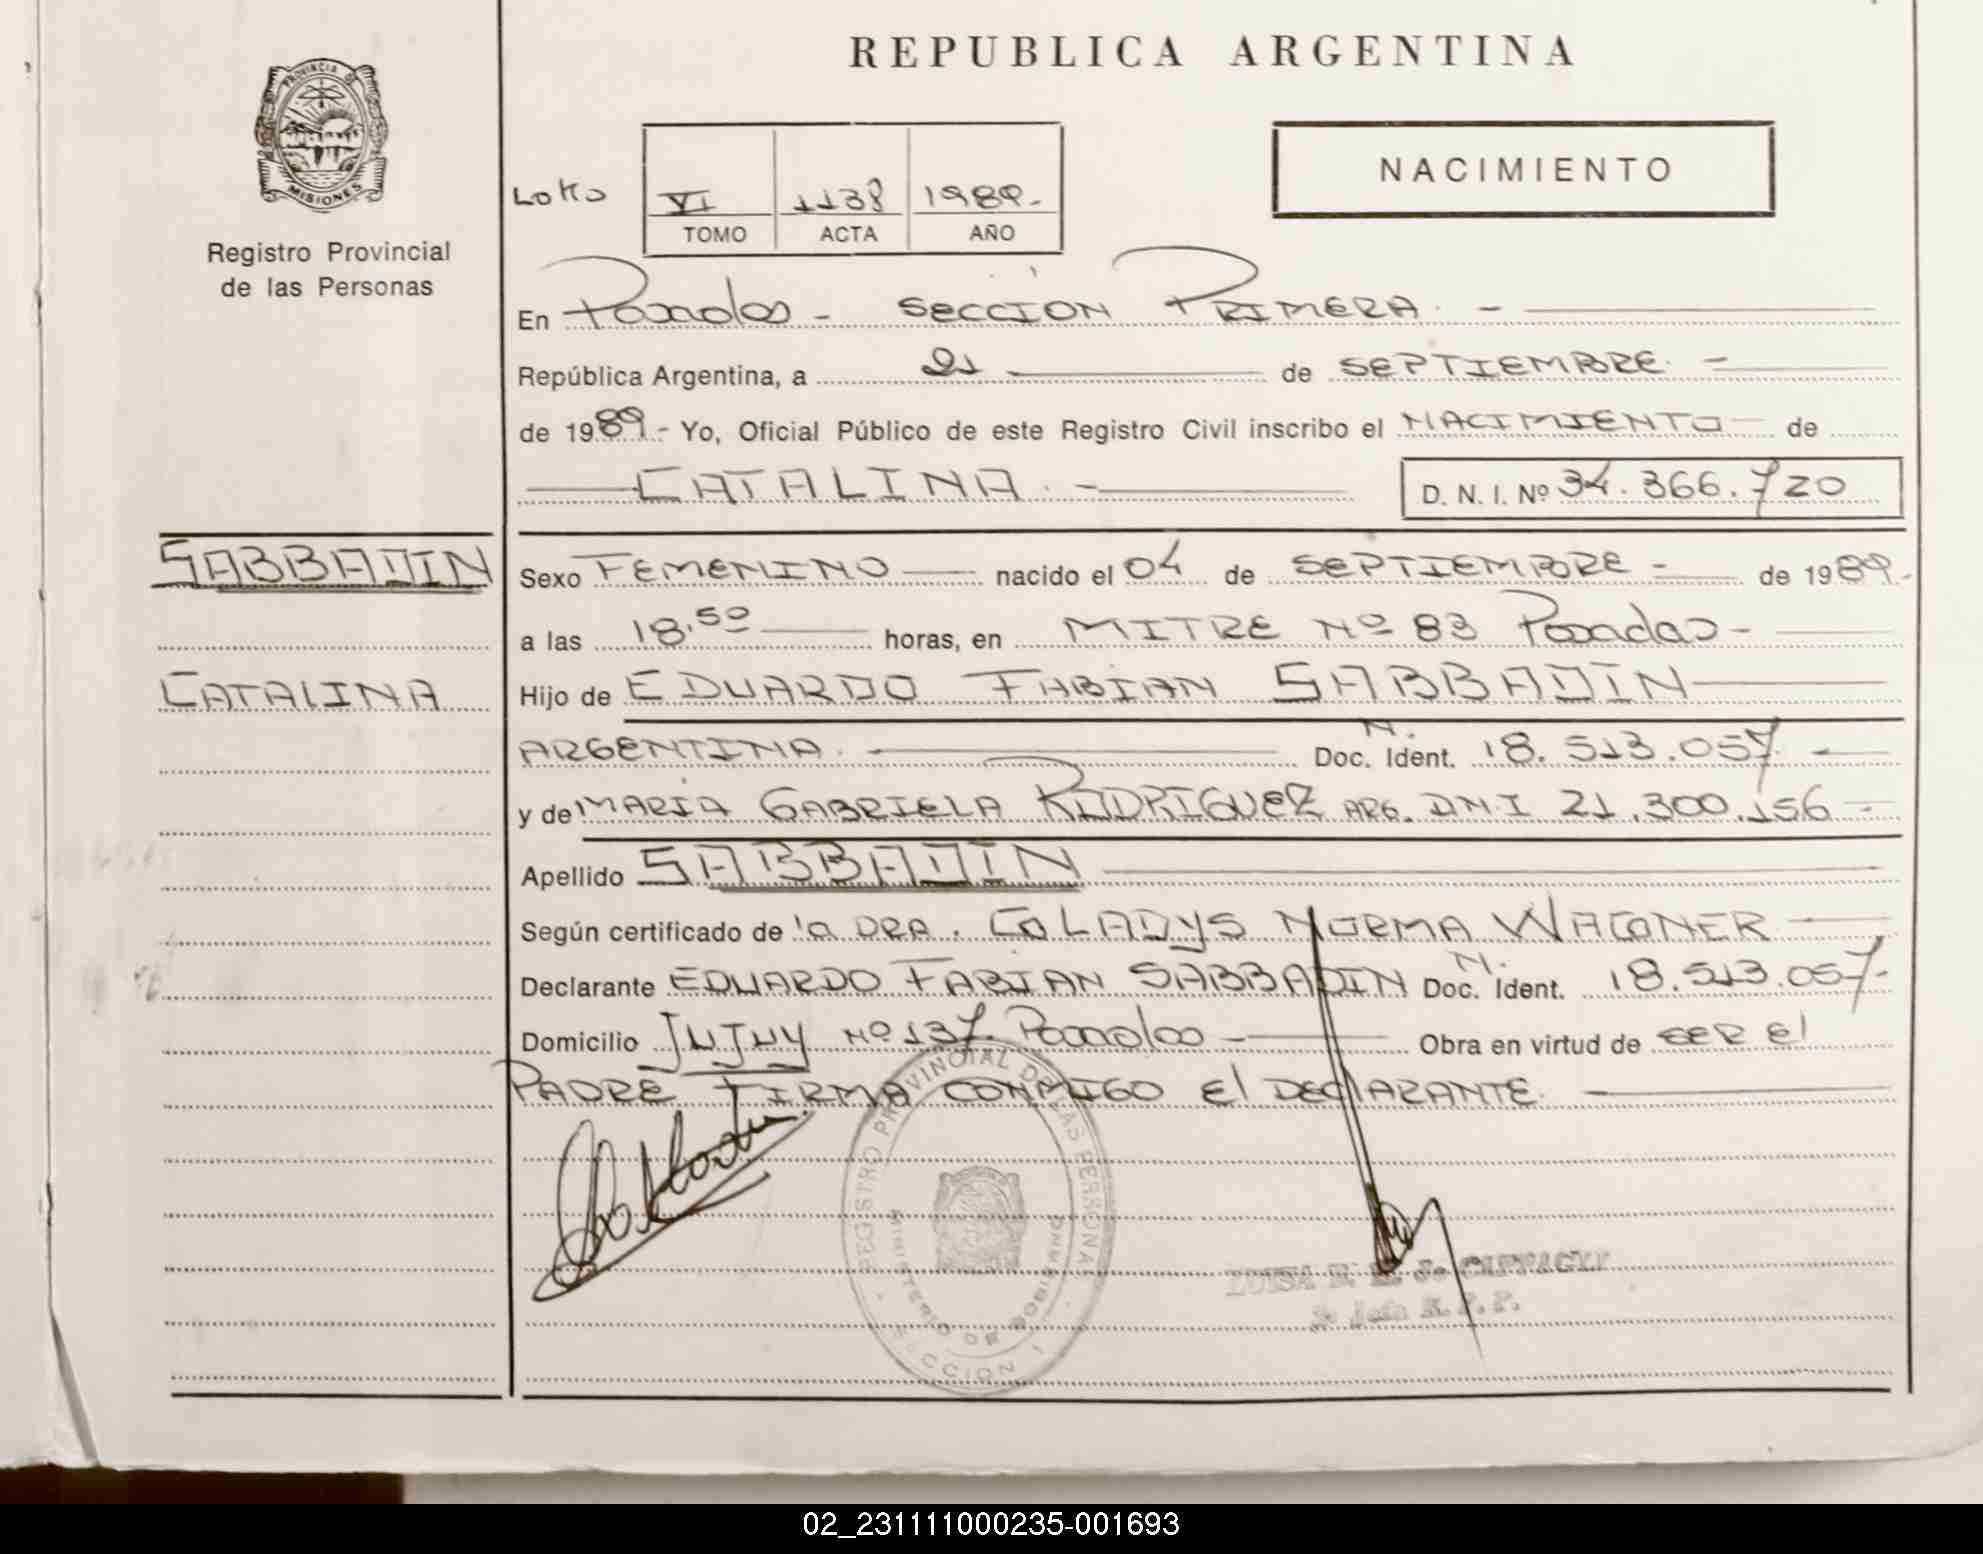 REPUBLICA ARGENTINA
PROVINCIA DE
MISIONES
Registro Provincial
de las Personas
NACIMIENTO
VI 1138 1989.-
TOMO ACTA AÑO
En Posadas - SECCION PRIMERA. -
República Argentina, a 21 de SEPTIEMBRE. -
de 1989.- Yo, Oficial Público de este Registro Civil inscribo el NACIMIENTO - de
CATALINA. -
D. N. I. Nº 34.366.720
SABBADIN
CATALINA
Sexo FEMENINO nacido el 04 de SEPTIEMBRE - de 1989.-
a las 18.50 horas, en MITRE Nº 83 Posadas -
Hijo de EDUARDO FABIAN SABBADIN
ARGENTINA. Doc. N. Ident. 18.513.057 -
y de MARIA GABRIELA RODRIGUEZ ARG. DNI 21.300.156 -
Apellido SABBADIN
Según certificado de la DRA. GLADYS NORMA WAGNER
Declarante EDUARDO FABIAN SABBADIN Doc. N. Ident. 18.513.057-
Domicilio JUJUY Nº 137. Posadas - Obra en virtud de SER El
PADRE FIRMA CONMIGO El DEClARANTE.
REGISTRO PROVINCIAL DE LAS PERSONAS
MINISTERIO DE GOBIERNO
SECCION 1
LUISA
02_231111000235-001693